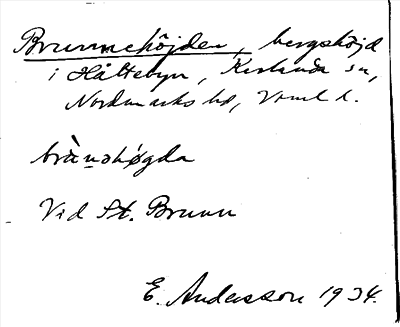 Brunnehöjden, bergshöjd
i Håltebyn, Karlanda sn,
Nordmarks hd, Värml. l.
brànshøgda
Vid St. Brunn
E. Andersson 1934.